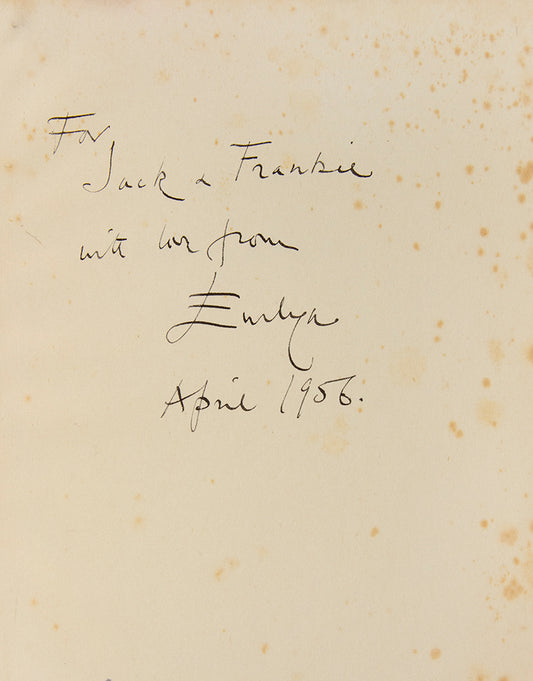 For
Jack & Frankie
with love from
Evelyn
April 1956.